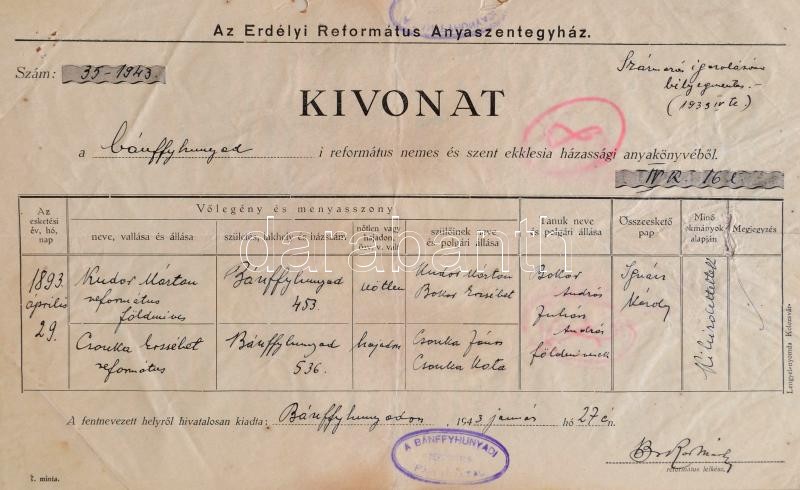 Az Erdélyi Református Anyaszentegyház.
Szám: 35-1943.
Származás igazolására
bélyegmentes.-
(1939 IV tc.)
KIVONAT
a Bánffyhunyad i református nemes és szent ekklesia házassági anyakönyvéből.
IV R. 16 l.
Az esketési év, hó, nap
Vőlegény és menyasszony
neve, vallása és állása
születés, lakhely és házszám
nőtlen vagy hajadon, özv. v. vált
szülőinek neve és polgári állása
Tanuk neve és polgári állása
Összeeskető pap
Minő okmányok alapján
Megjegyzés
1893
április
29.
Kudor Márton
református
földmíves
Bánffyhunyad
453.
nőtlen
Kudor Márton
Bokor Erzsébet
Bokor
András
András
földmívesek
Ignácz
Károly
Kihirdettettek
Csonka Erzsébet
református
Bánffyhunyad
536.
hajadon
Csonka János
Csonka Kata
A fentnevezett helyről hivatalosan kiadta: Bánffyhunyadon, 1943 január hó 27 én.
A BÁNFFYHUNYADI
református lelkész.
7. minta.
Lengyel-nyomda Kolozsvár
darabanth